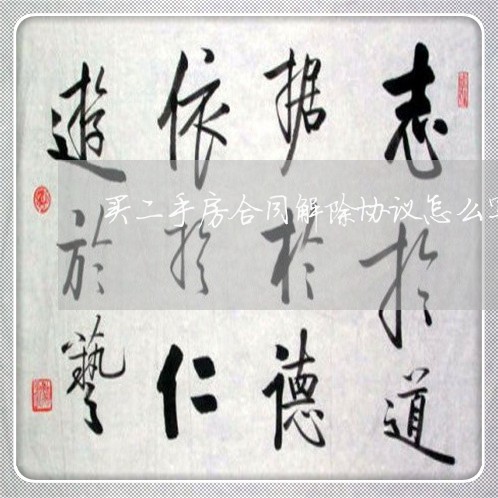 志於道
据於德
依於仁
遊於藝
买二手房合同解除协议怎么